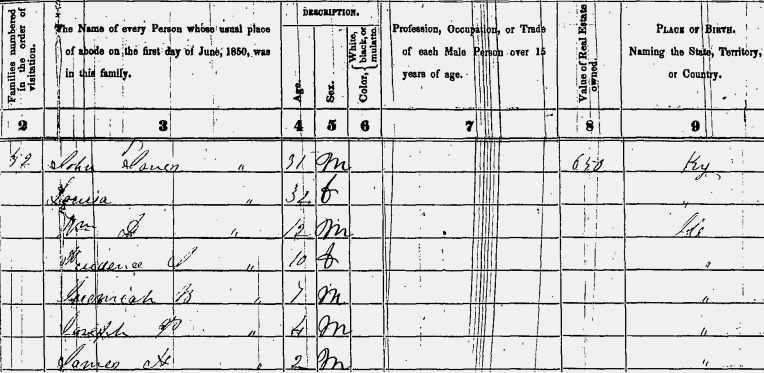 DESCRIPTION.
Families numbered in the order of visitation.
The Name of every Person whose usual place
of abode on the first day of June, 1850, was
in this family.
Age.
Sex.
Color, { White, black, or mulatto. }
Profession, Occupation, or Trade
of each Male Person over 15
years of age.
Value of Real Estate owned.
PLACE OF BIRTH.
Naming the State, Territory,
or Country.
2 3 4 5 6 7 8 9
52 John " 31 M 650 Ky
Louisa " 32 f "
Wm " 12 M
Prudence " 10 f "
Jeremiah B " 7 M "
Joseph " 4 M "
James H " 2 M "